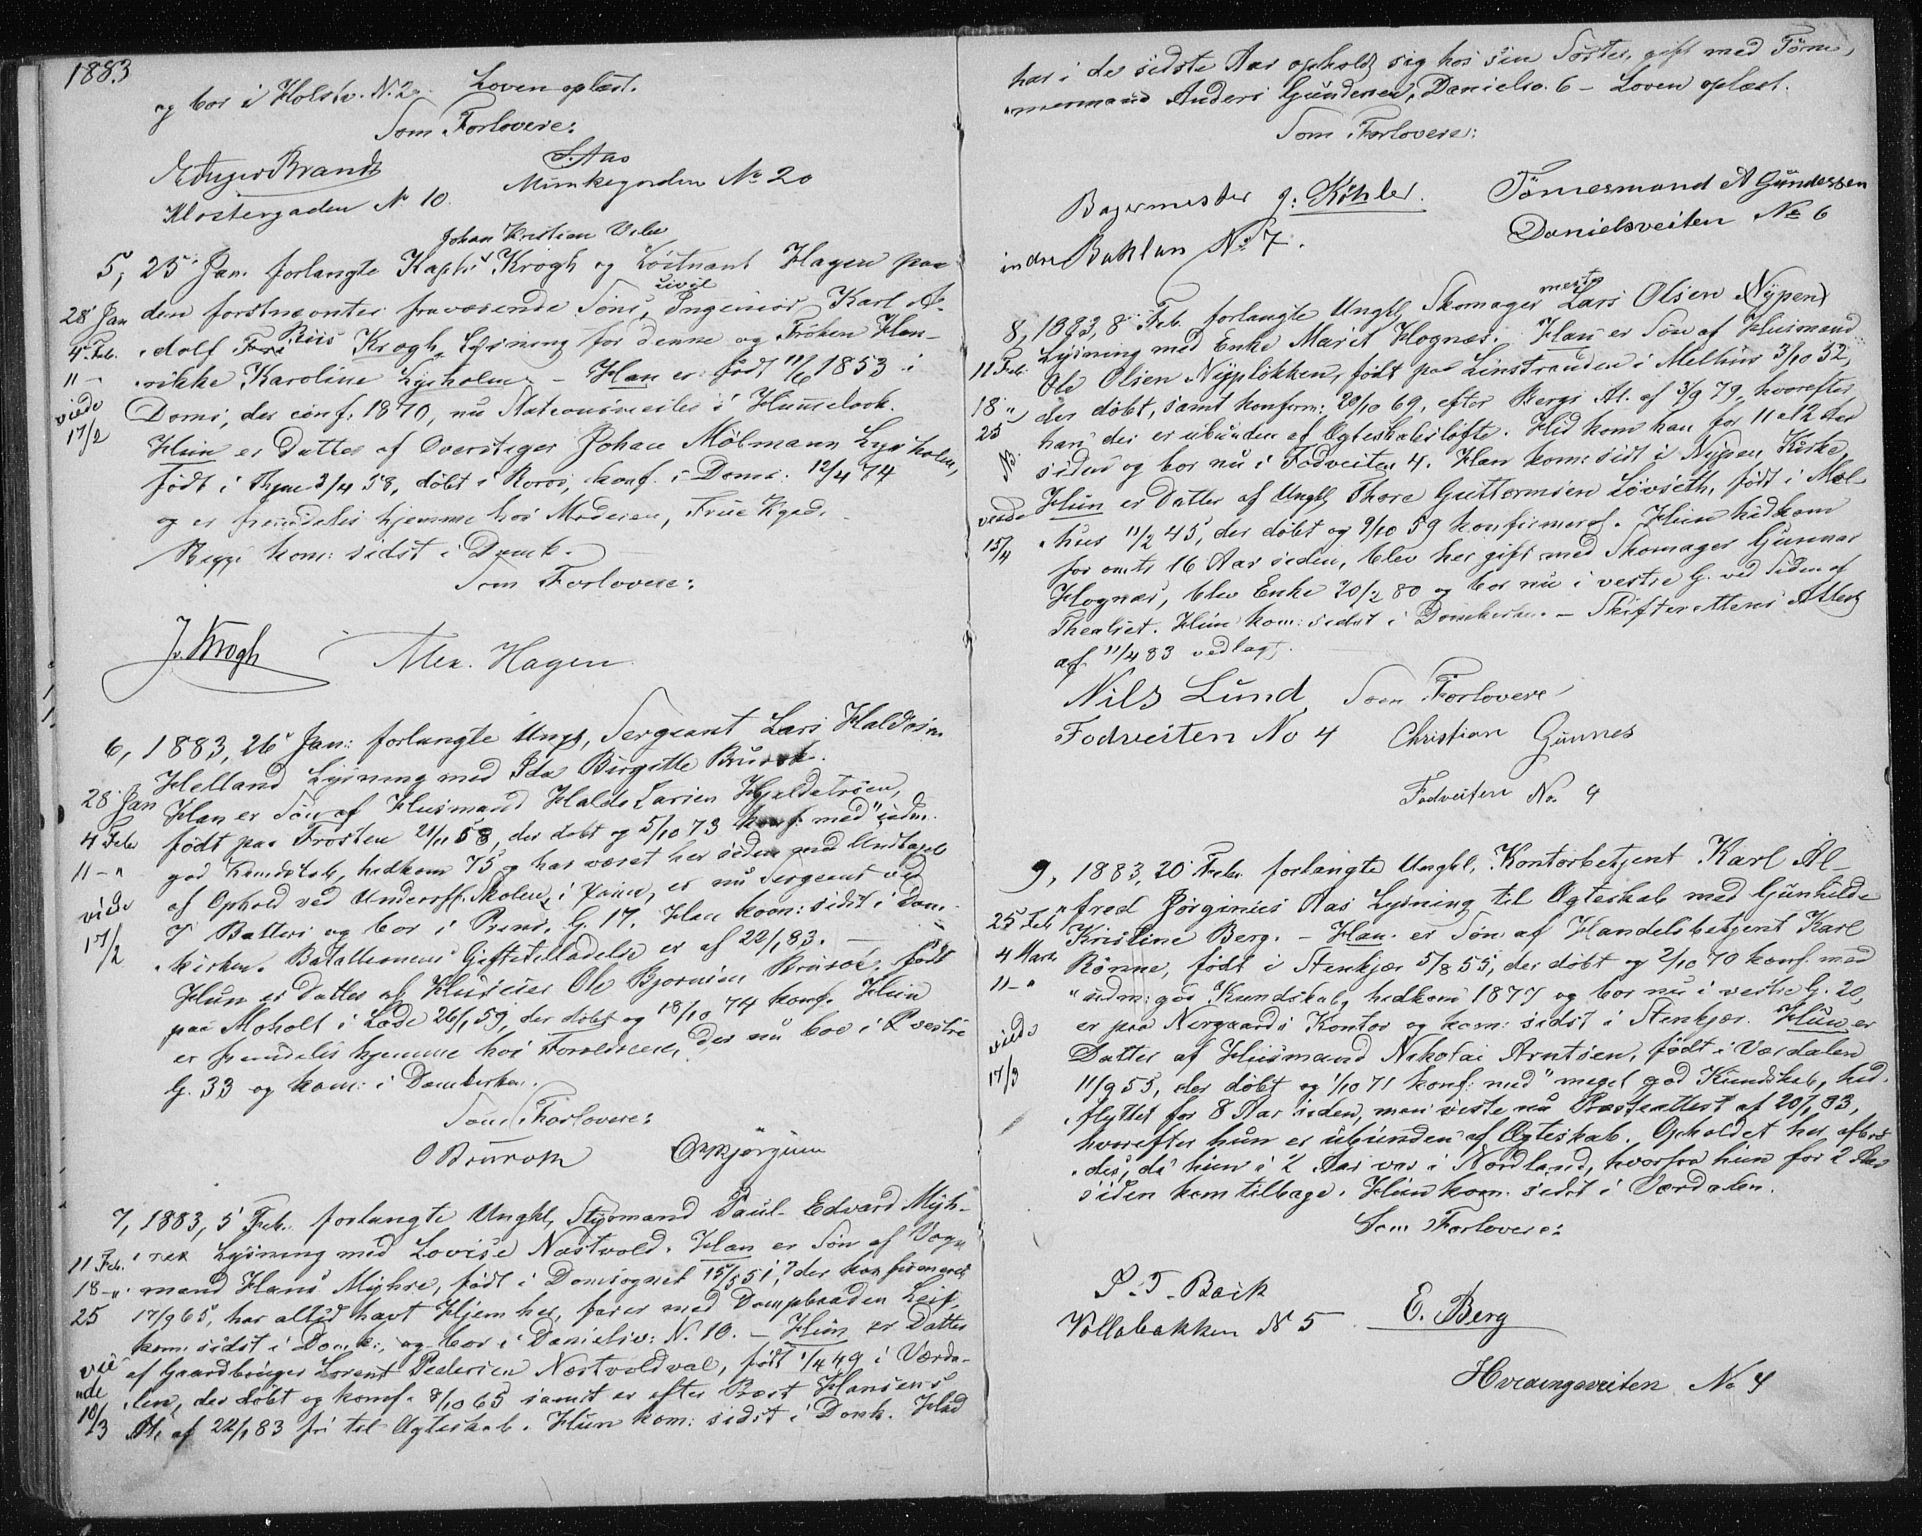 1883
og bor i Holstv. N. 2. Loven oplæst.
Som Forlovere:
Brandt S. Aas
Klostergaden № 10. Munkegaden № 20
Johan Kristian Vibe
5, 25 Jan. forlangte Kapt. Krogh og Løitnant Hagen paa
28 Jan den førstnævntes fraværende Søns, civil Ingeniør Karl A-
4 Feb. dolf Krogh, Lysning for denne og Frøken Hen-
11 – rikke Karoline Lysholm. – Han er født 11/6 1853 i
viede Doms, der conf. 1870, nu
17/2
Hun er Datter af Overstiger Johan Mölmann Lysholm,
født i 3/4 58, døbt i Røros, konf. i Doms. 12/4 74
og er fremdeles hjemme hos Moderen, Frue
Begge kom: sidst i Domk.
Som Forlovere:
J. Krogh Alex. Hagen.
6, 1883, 26 Jan: forlangte Ungk, Sergeant Lars Haldosen
Helland Lysning med Ida Birgitte Brurok.
28 Jan Han er Søn af Husmand Haldo Larsen
4 Feb født paa Frosten 21/11 58, der døbt og 5/10 73 konf. med "sædv.
11 – " god Kundskab, hidkom 75 og har været her siden med Undtagel
af Ophold ved Underoff. Skolen, er nu Sergeant ved
viede Batteri og bor i Prins. G. 17. Han kom: sidst i Dom-
17/2 kirken. Bataillonens Giftetilladelse er af 22/1 83. –
Hun er Datter af Ole Bjørnsen Brurok, født
paa Moholt i Lade 26/1 59, der døbt og 18/10 74 konf. Hun
er fremdeles hjemme hos Forældrene, der nu bor i vestre
G. 33 og kom: i Domkirken.
Som Forlovere:
O Brurok
7, 1883, 5 Feb. forlangte Ungkl, Styrmand Paul Edvard Myh-
11 Feb. ren Lysning med Lovise Næstvold. Han er Søn af Vogn
18 – " mand Hans Myhre, født i Domsognet 15/5 51, der konfirmeret
25 17/9 65, har altid havt Hjem her, farer med Dampbaaden Leif,
kom: sidst i Domk:, og bor i Danielsv: N. 10. – Hun er Datter
vie af Gaardbruger Lorents Pedersen Næstvoldval, født 1/4 49 i Værda-
ede len, der døbt og konf. 8/10 65 samt er efter Præst Hansens
10/3 At. af 22/1 83 fri til Ægteskab. Hun kom: sidst i Domk. Hed
har i de sidste Aar opholdt sig hos sin Søster, gift med Tøm-
mermand Anders Gundersen, Danielsv. 6 – Loven oplæst.
Som Forlovere:
Bagermester J. Köhler. Tömesmand A Gundersen
indre Baklan № 7. Danielsveiten № 6
8, 1883, 8 Feb. forlangte Ungkl, Skomagermester Lars Olsen (Nypen)
Lysning med Enke Marit Hognæs. Han er Søn af Husmand
11 Feb. Ole Olsen Nypløkken, født paa Leinstranden i Melhus 3/10 52,
18 " der døbt, samt konfirm: 20/10 69, efter Bergs At. af 3/9 79, hvorefter
25 han der er ubunden af Ægteskabsløfte. Hid kom han for 11 a 12 Aar
siden og bor nu i Fodveiten 4. Han kom: sidst i Nypen Kirke,
viede Hun er Datter af Ungkl, Thore Guttormsen Løvseth, født i Mel-
15/4 hus 11/2 45, der døbt og 9/10 59 konfirmeret. Hun hidkom
for omtr 16 Aar siden, blev her gift med Skomager Gunnar
Hognæs, blev Enke 20/2 80 og bor nu i vestre G. ved Siden af
Theatret. Hun kom: sidst i Domkirken. – Skifterettens Attest
af 11/4 83 vedlagt.
Nils Lund Som Forlovere
Fodveiten No 4 Christian Gunnes
Fodveiten No. 9
9, 1883, 20 Feb. forlangte Ungkl. Kontorbetjent Karl Al-
fred Jørginius Aas Lysning til Ægteskab med Gunhilde
25 Feb Kristine Berg. – Han er Søn af Handelsbetjent Karl
4 Marts Rønne, født i Stenkjær 5/8 55, der døbt og 2/10 70 konf. med
11 – " "sædm: god Kundskab, hidkom 1877 og bor nu i vestre G. 20,
er paa Nergaards Kontor og kom: sidst i Stenkjær. Hun er
viede Datter af Husmand Nikolai Arntsen, født i Værdalen
17/3 11/9 55, der døbt og 1/10 71 konf: med "meget god Kundskab, hid-
flyttet for 8 Aar siden, men viste nu Præsteattest af 20/1 83,
hvorefter hun er ubunden af Ægteskab. Opholdet her afbrø-
des, da hun i 2 Aar var i Nordland, hvorfra hun for 2 Aar
siden kom tilbage. Hun kom. sidst i Værdalen.
Som Forlovere:
P. T. Bæck
Vollabakken N 5 E. Berg
Hvedingsveiten No 4